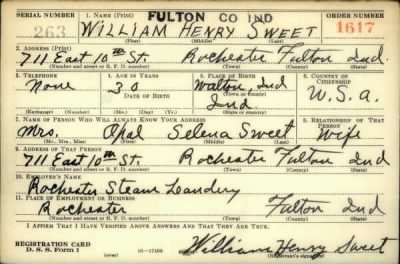 SERIAL NUMBER 1. NAME (Print) FULTON CO IND ORDER NUMBER
263 WILLIAM HENRY SWEET 1617
(First) (Middle) (Last)
2. ADDRESS (Print)
711 East 10th St. Rochester Fulton Ind.
(Number and street or R. F. D. number) (Town) (County) (State)
3. TELEPHONE 4. AGE IN YEARS 5. PLACE OF BIRTH 6. COUNTRY OF CITIZENSHIP
None 30 Walton, Ind
DATE OF BIRTH (Town or county)
Ind U.S.A.
(Exchange) (Number) (Mo.) (Day) (Yr.) (State or country)
7. NAME OF PERSON WHO WILL ALWAYS KNOW YOUR ADDRESS 8. RELATIONSHIP OF THAT PERSON
Mrs. Opal Selena Sweet Wife
(Mr., Mrs., Miss) (First) (Middle) (Last)
9. ADDRESS OF THAT PERSON
711 East 10th St. Rochester Fulton Ind
(Number and street or R. F. D. number) (Town) (County) (State)
10. EMPLOYER'S NAME
Rochester Steam Laundery
11. PLACE OF EMPLOYMENT OR BUSINESS
Rochester Fulton Ind
(Number and street or R. F. D. number) (Town) (County) (State)
I AFFIRM THAT I HAVE VERIFIED ABOVE ANSWERS AND THAT THEY ARE TRUE.
REGISTRATION CARD William Henry Sweet
D. S. S. Form 1 (over) 16—17105 (Registrant's signature)